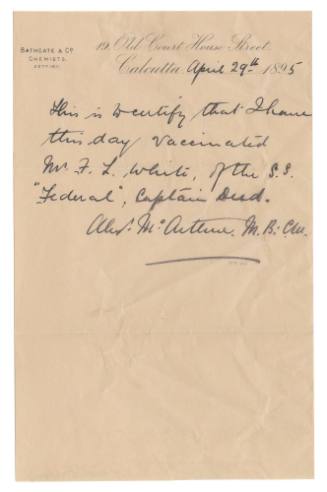 BATHGATE & Co
CHEMISTS.
19, Old Court House Street.
Calcutta, April 29th 1895
This is to certify that I have
this day vaccinated
Mr F. L. White, of the S.S.
"Federal", Captain
Alexr. McArthur. M.B: C.M.